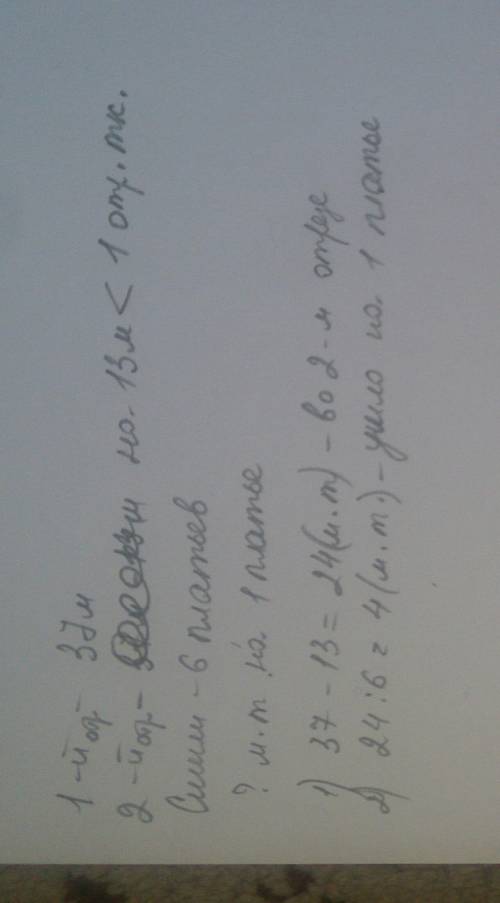 1-й от- 37м
2-й от- на 13м < 1 отр. тк.
Сшили - 6 платьев
? м.т на 1 платье
1) 37 - 13 = 24(м.т) - во 2-м отрезе
2) 24 : 6 = 4 (м.т.) - ушло на 1 платье